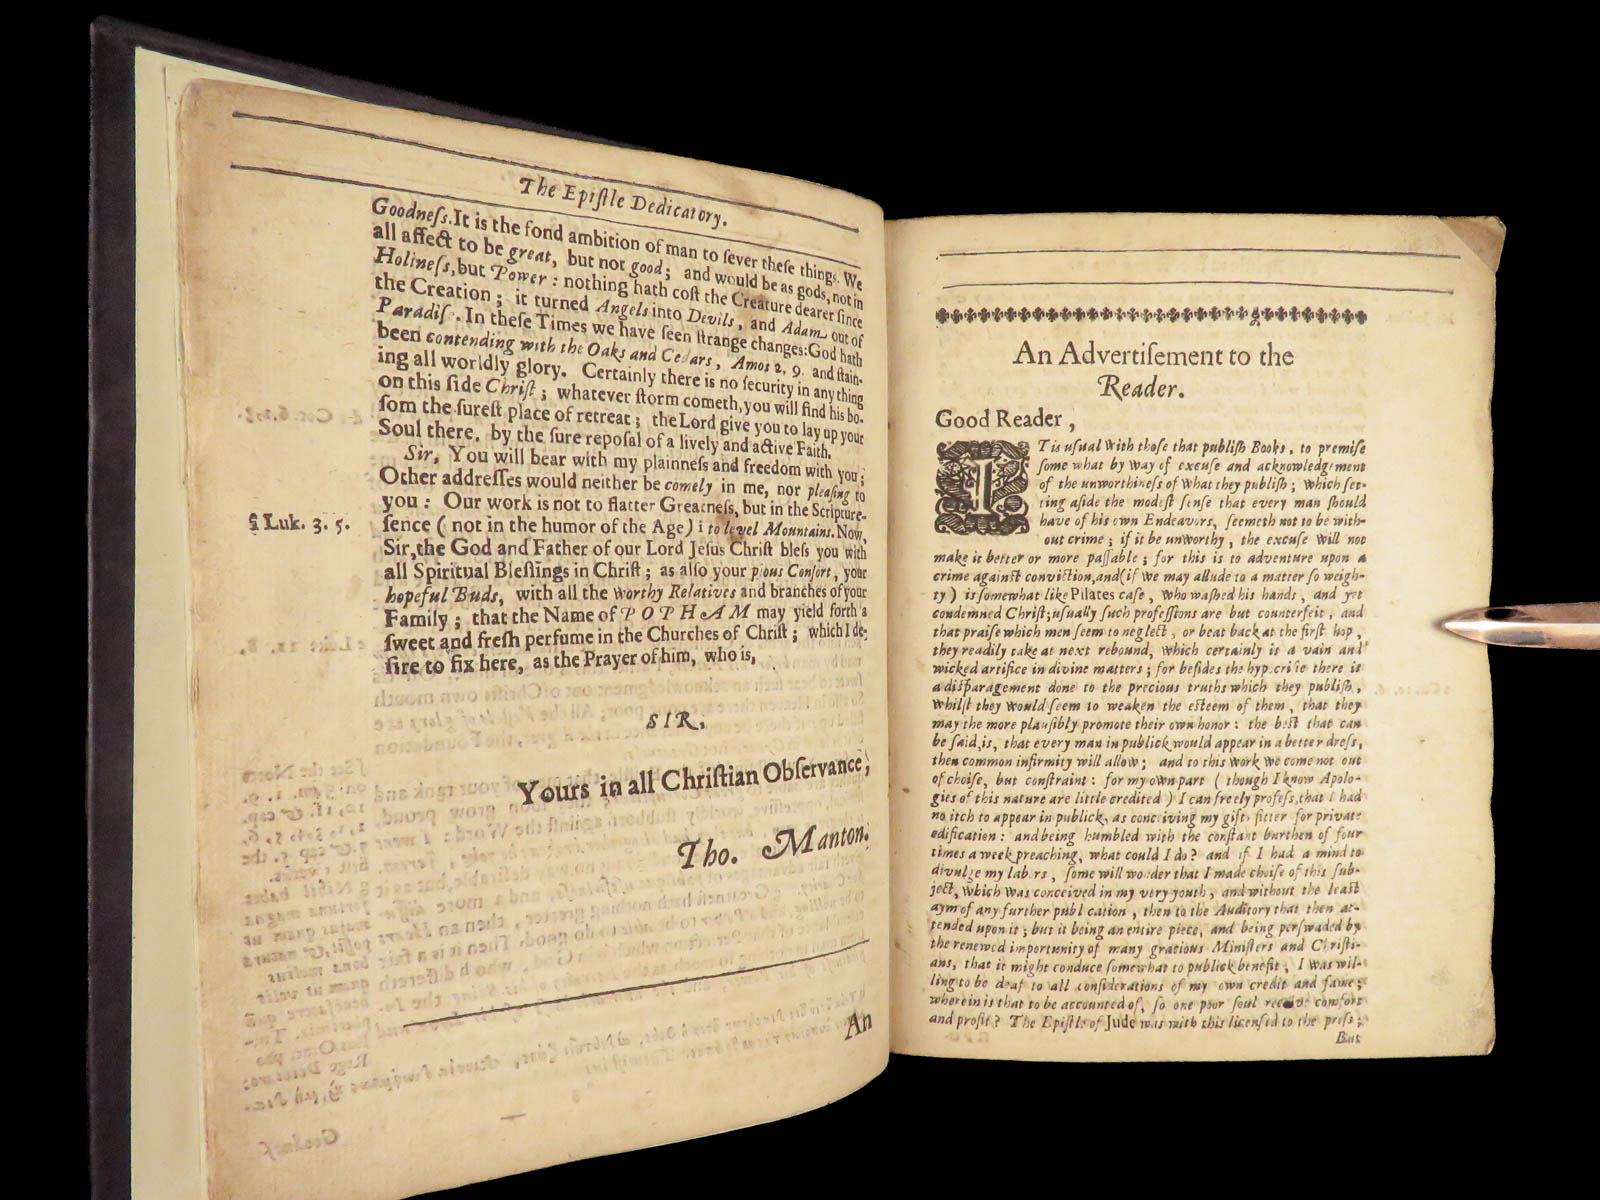 The Epiſtle Dedicatory.
Goodneſs. It is the fond ambition of man to ſever theſe things. We
all affect to be great, but not good; and would be as gods, not in
Holineſs, but Power: nothing hath coſt the Creature dearer ſince
the Creation; it turned Angels into Devils, and Adam out of
Paradiſe. In theſe Times we have ſeen ſtrange changes: God hath
been contending with the Oaks and Cedars, Amos 2, 9. and ſtain-
ing all worldly glory. Certainly there is no ſecurity in any thing
on this ſide Chriſt; whatever ſtorm cometh, you will find his bo-
ſom the ſureſt place of retreat; the Lord give you to lay up your
Soul there, by the ſure repoſal of a lively and active Faith.
Sir, You will bear with my plainneſs and freedom with you;
Other addreſſes would neither be comely in me, nor pleaſing to
you: Our work is not to flatter Greatneſs, but in the Scripture-
§ Luk. 3. 5.
ſence ( not in the humor of the Age) i to level Mountains. Now,
Sir, the God and Father of our Lord Jeſus Chriſt bleſs you with
all Spiritual Bleſſings in Chriſt; as alſo your pious Conſort, your
hopeful Buds, with all the worthy Relatives and branches of your
Family; that the Name of POPHAM may yield forth a
ſweet and freſh perfume in the Churches of Chriſt; which I de-
ſire to fix here, as the Prayer of him, who is,
SIR,
Yours in all Chriſtian Obſervance,
Tho. Manton.
An
An Advertiſement to the
Reader.
Good Reader,
IT is uſual with thoſe that publiſh Books, to premiſe
ſome what by way of excuſe and acknowledgement
of the unworthineſs of what they publiſh; which ſet-
ting aſide the modeſt ſenſe that every man ſhould
have of his own Endeavors, ſeemeth not to be with-
out crime; if it be unworthy, the excuſe will not
make it better or more paſſable; for this is to adventure upon a
crime againſt conviction, and (if we may allude to a matter ſo weigh-
ty) is ſomewhat like Pilates caſe, who waſhed his hands, and yet
condemned Chriſt; uſually ſuch profeſſions are but counterfeit, and
that praiſe which men ſeem to neglect, or beat back at the firſt hop,
they readily take at next rebound, which certainly is a vain and
wicked artifice in divine matters; for beſides the hypocriſie there is
a diſparagement done to the precious truths which they publiſh,
whilſt they would ſeem to weaken the eſteem of them, that they
may the more plauſibly promote their own honor: the beſt that can
be ſaid, is, that every man in publick would appear in a better dreſs,
then common infirmity will allow; and to this work we come not out
of choiſe, but conſtraint: for my own part ( though I know Apolo-
gies of this nature are little credited ) I can freely profeſs, that I had
no itch to appear in publick, as conceiving my gifts fitter for private
edification: and being humbled with the conſtant burthen of four
times a week preaching, what could I do? and if I had a mind to
divulge my labors, ſome will wonder that I made choiſe of this ſub-
ject, which was conceived in my very youth, and without the leaſt
aym of any further publication, then to the Auditory that then at-
tended upon it; but it being an entire piece, and being perſwaded by
the renewed importunity of many gracious Miniſters and Chriſti-
ans, that it might conduce ſomewhat to publick benefit, I was wil-
ling to be deaf to all conſiderations of my own credit and fame;
wherein is that to be accounted of, ſo one poor ſoul receive comfort
and profit? The Epiſtle of Jude was with this licenſed to the preſs;
But